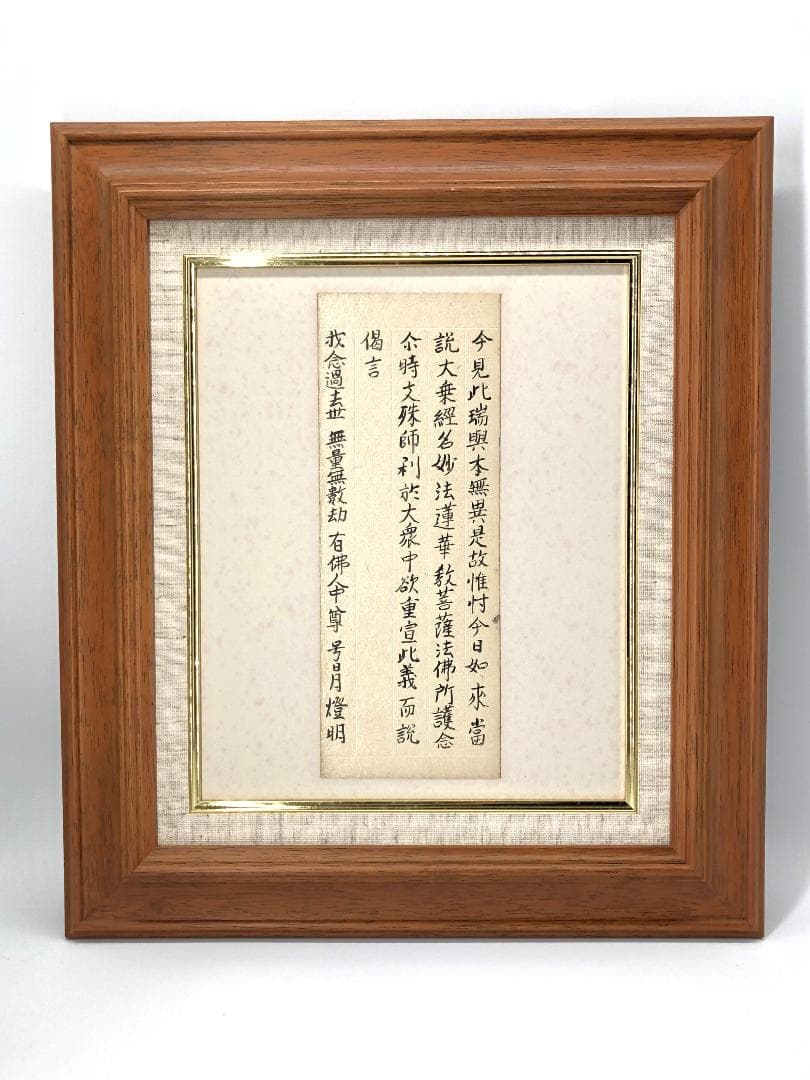 今見此瑞與本無異是故惟忖今日如來當
說大乗經名妙法蓮華教菩薩法佛所護念
尒時文殊師利於大衆中欲重宣此義而說
偈言
我念過去世 無量無數劫 有佛人中尊 号日月燈明